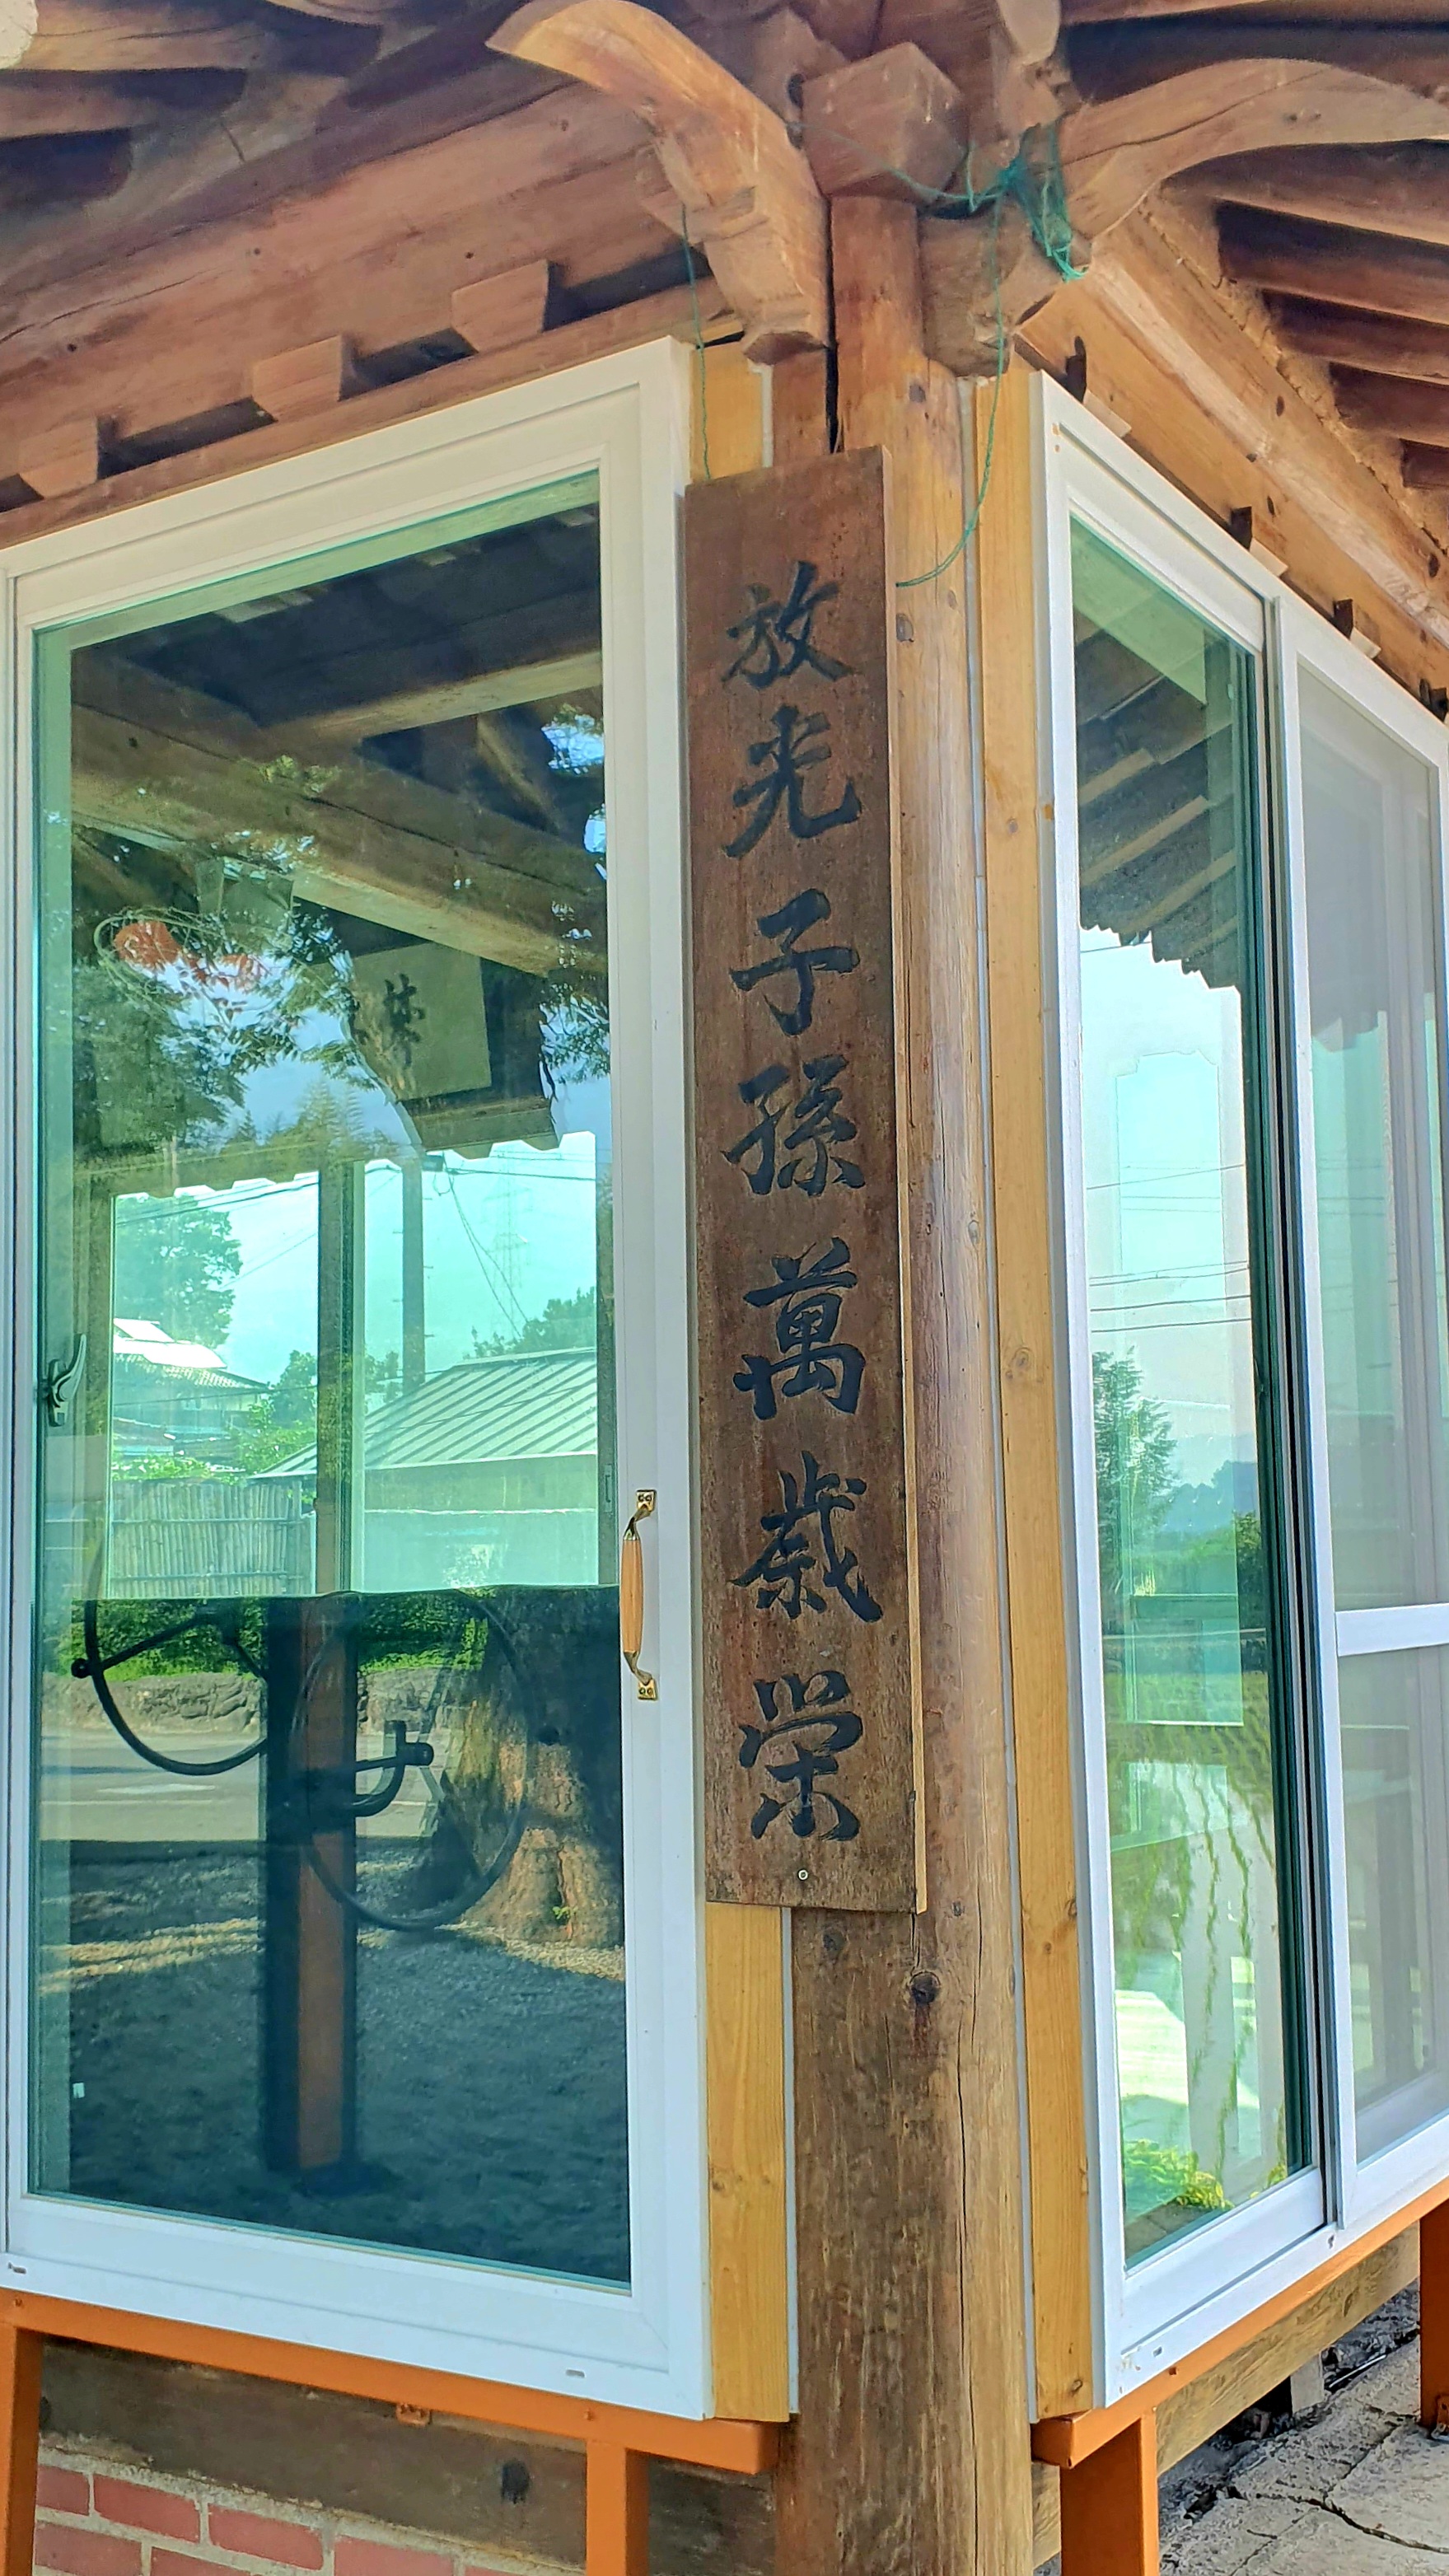 放光子孫萬歲榮